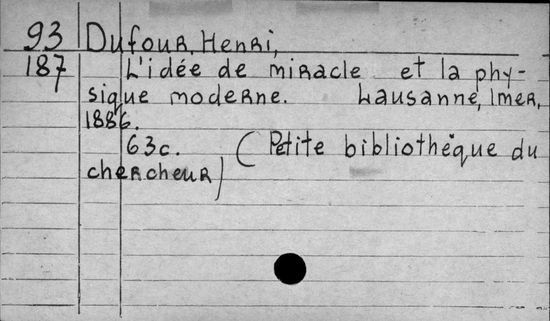 93 Dufour, Henri,
187 L'idée de miracle et la phy-
sique moderne. Lausanne, Imer,
1886.
63c. (Petite bibliothèque du
chercheur)